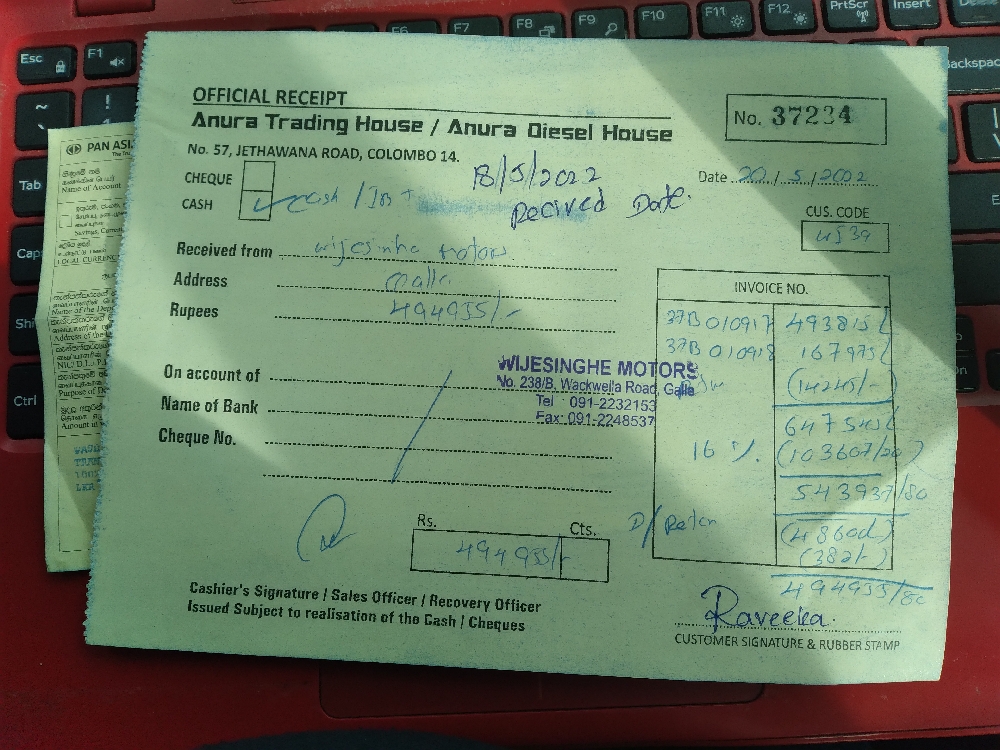 Esc
F1
F6
F7
F8
F9
F10
F11
F12
PrtScr
Insert
Backspac
Tab
Ctrl
PAN ASI
Name of Account
OFFICIAL RECEIPT
Anura Trading House / Anura Diesel House
No. 57, JETHAWANA ROAD, COLOMBO 14.
No. 37234
CHEQUE
CASH
18/5/2022
Recived Date.
Date 20/5/2022
CUS. CODE
Received from wijesinha motors
Address Galle
Rupees 494935/-
INVOICE NO.
37B 010917 493815/
37B 010918 167975/
(14245/-)
647545/
16 %. (103607/20)
543937/80
(48600/)
(382/-)
494955/80
WIJESINGHE MOTORS
No. 238/B, Wackwella Road, Galle
Tel : 091-2232153
Fax: 091-2248537
On account of
Name of Bank
Cheque No.
Rs. Cts.
494935/-
Cashier's Signature / Sales Officer / Recovery Officer
Issued Subject to realisation of the Cash / Cheques
Raveeka.
CUSTOMER SIGNATURE & RUBBER STAMP